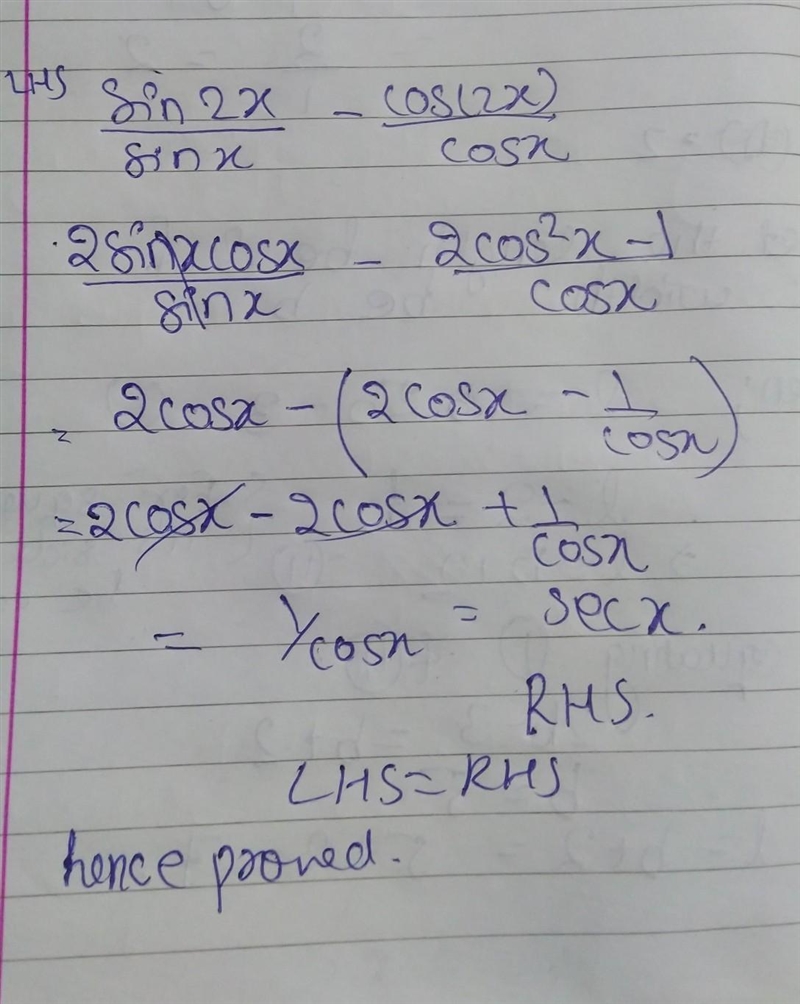 LHS sin2x/sinx - cos(2x)/cosx
2sinxcosx/sinx - 2cos²x-1/cosx
= 2cosx - (2cosx - 1/cosx)
= 2cosx - 2cosx + 1/cosx
= 1/cosx = secx.
RHS.
LHS=RHS
hence proved.